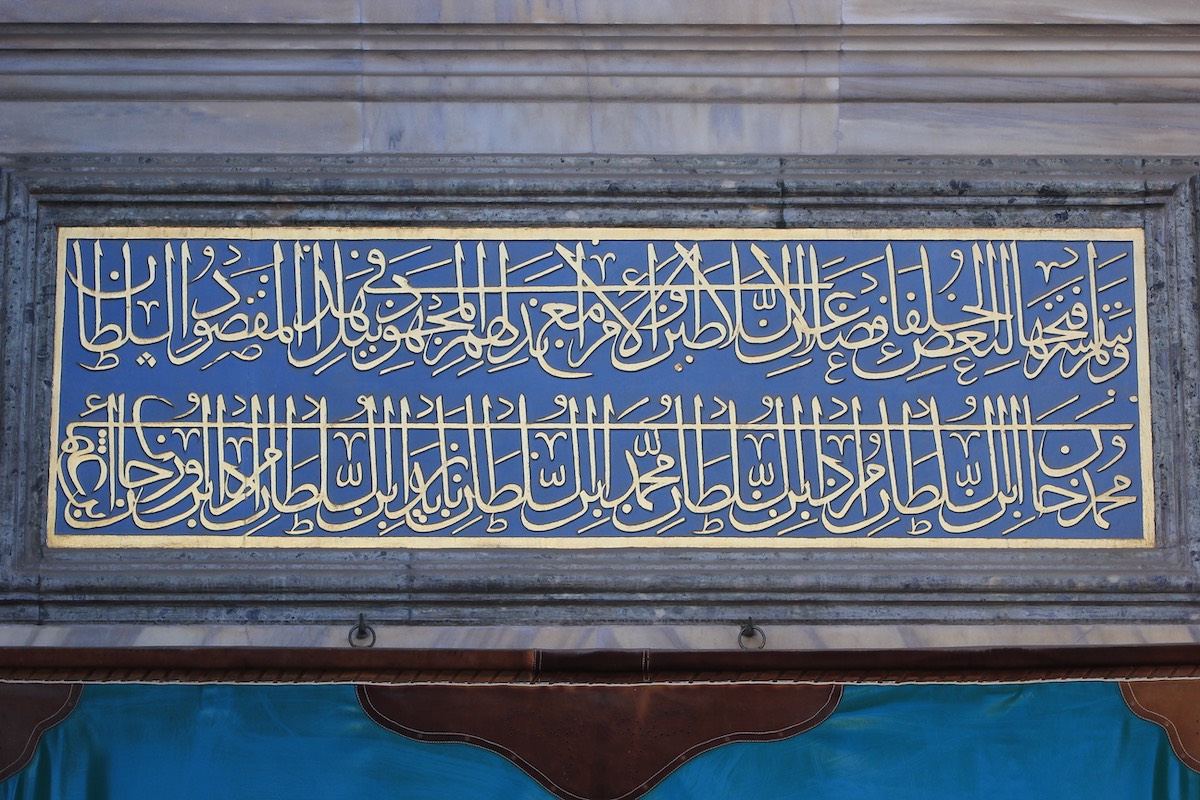 ولم يتيسر فتحها لبعض الخلفا فضلا عن السلاطين والامرا مع بذلهم المجهود في نيل هذا المقصود السلطان
محمد خان ابن السلطان مراد بن السلطان محمد ابن السلطان بايزيد ابن السلطان مراد ابن اورخان